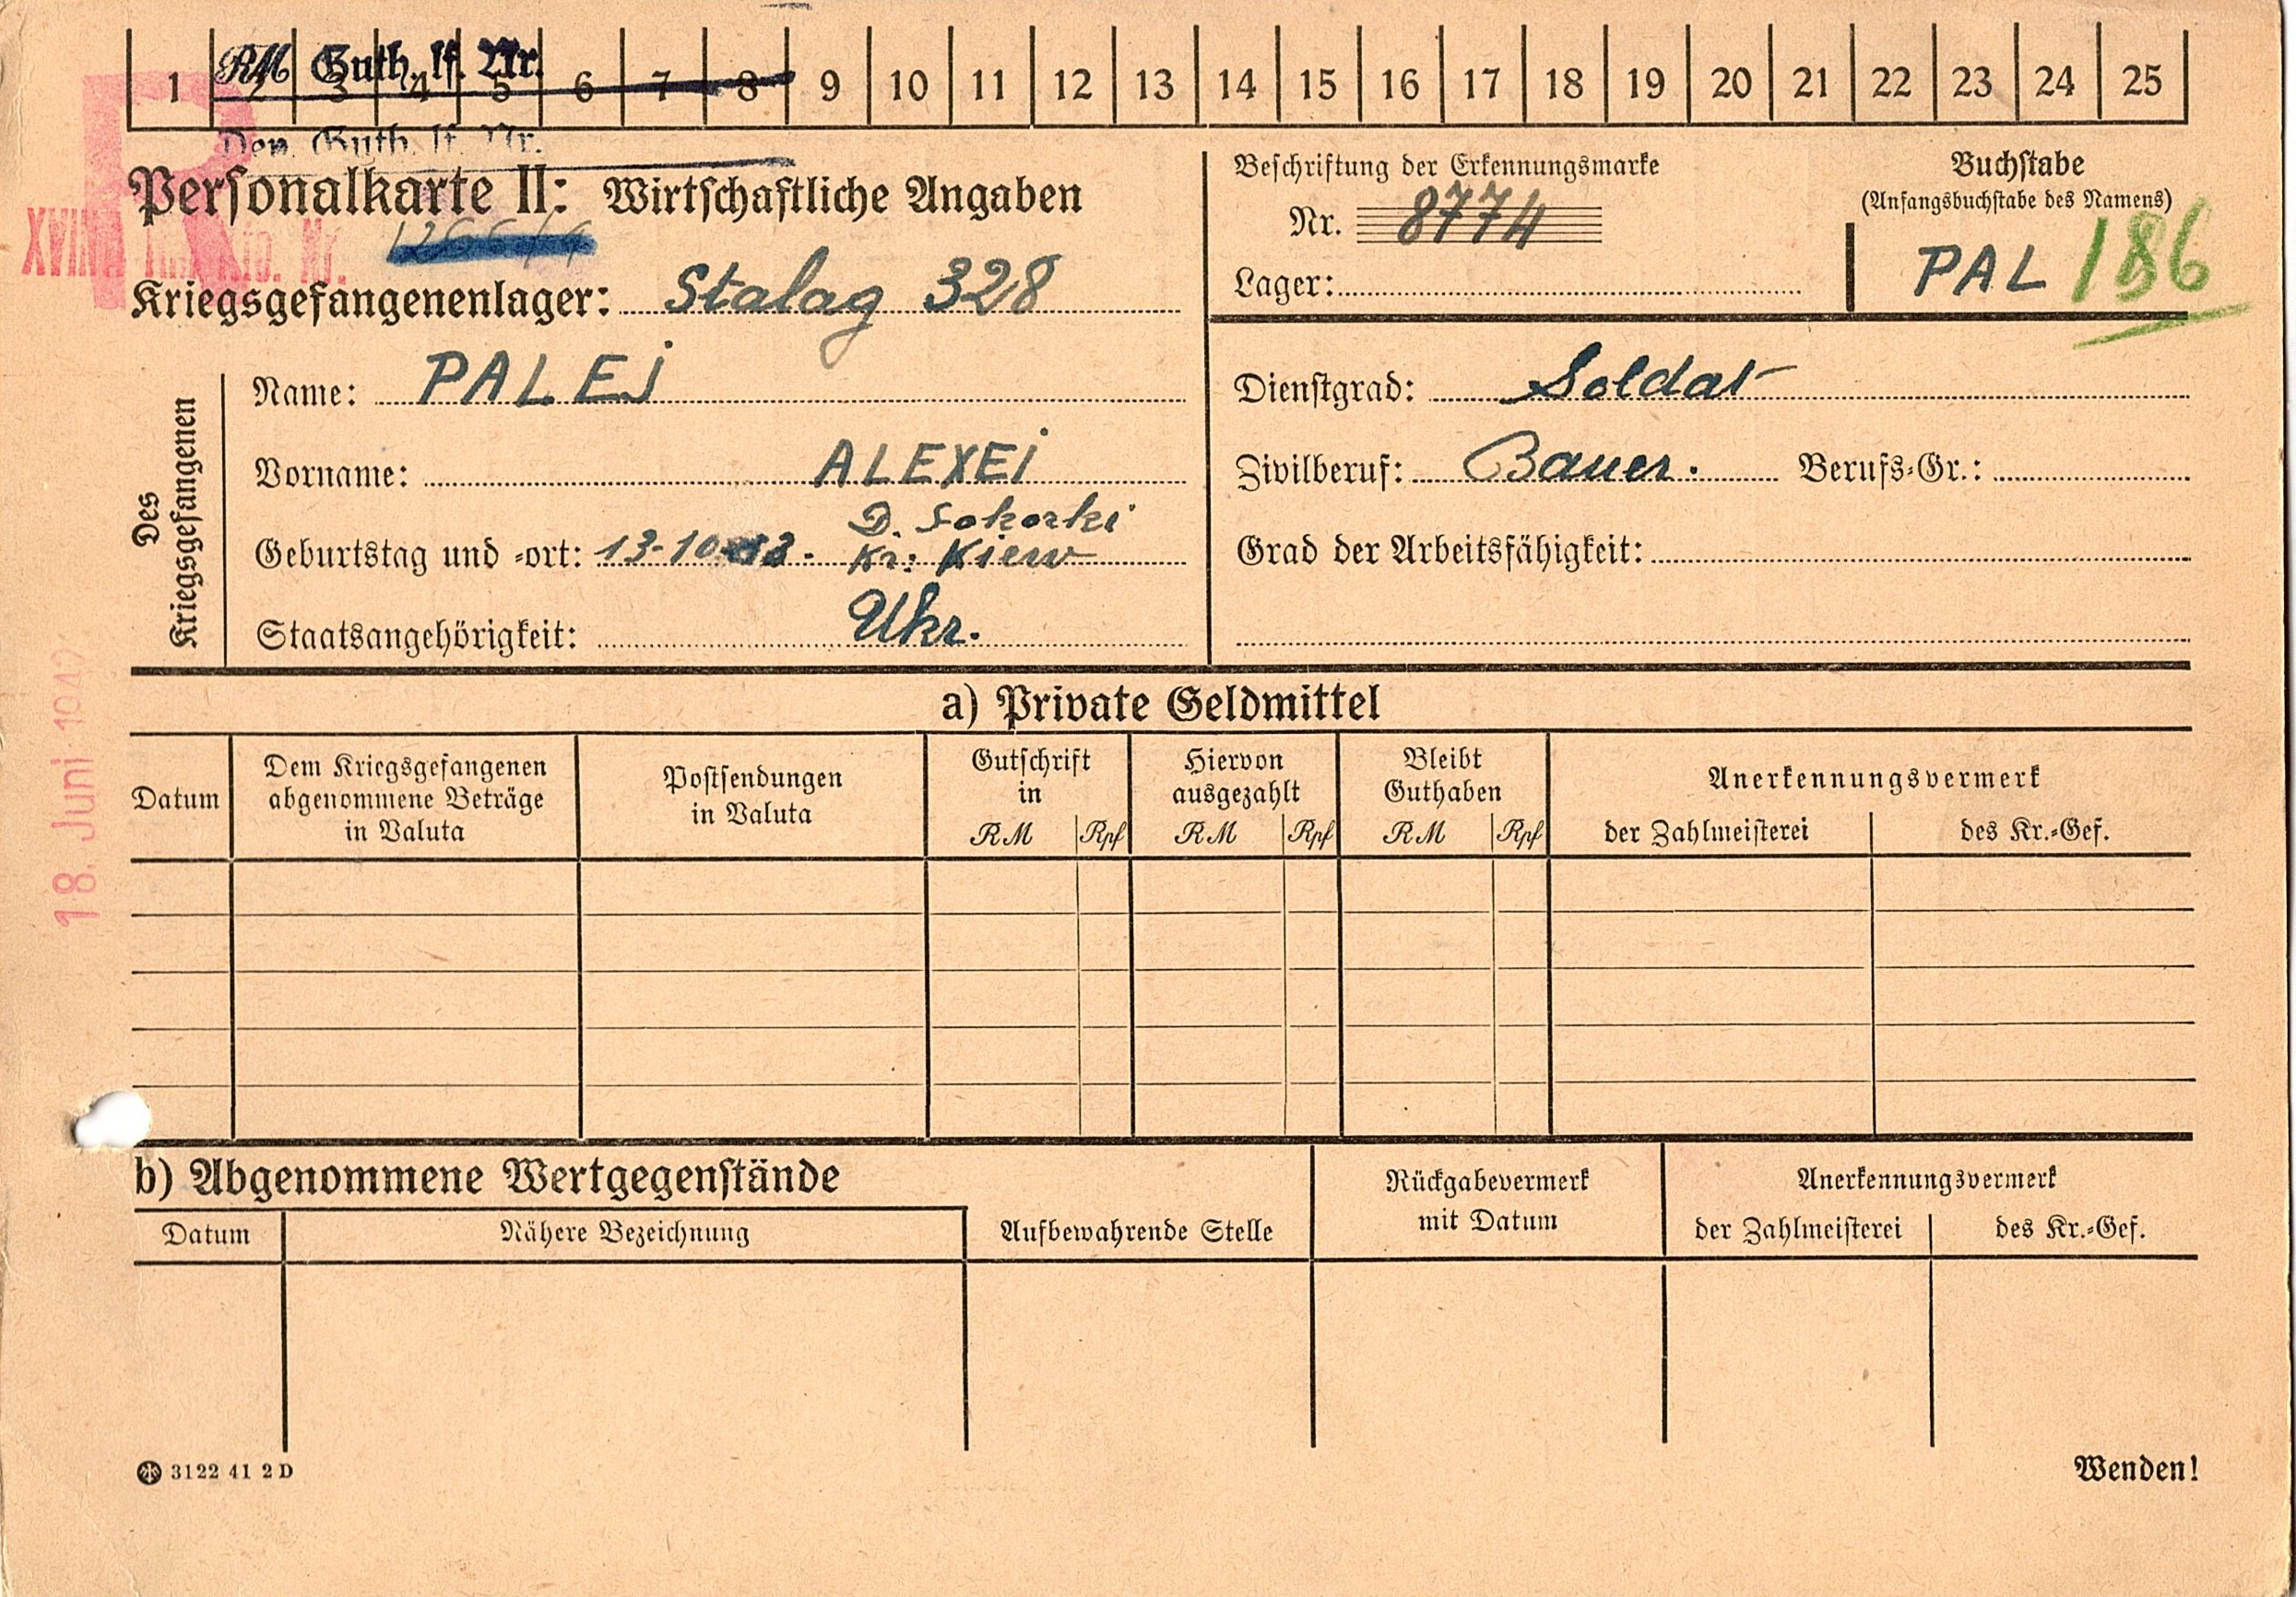 1 2 3 4 5 6 7 8 9 10 11 12 13 14 15 16 17 18 19 20 21 22 23 24 25
RM Guth. lf. Nr.
Dep. Guth. lf. Nr.
Personalkarte II: Wirtschaftliche Angaben
XVII
Nr.
Kriegsgefangenenlager: Stalag 328
Beschriftung der Erkennungsmarke
Nr. 8774
Lager:
Buchstabe
(Anfangsbuchstabe des Namens)
PAL 186
Des Kriegsgefangenen
Name: PALEJ
Vorname: ALEXEI
D. Sokorki
Geburtstag und -ort: 13-10- Kr: Kiew
Staatsangehörigkeit: Ukr.
Dienstgrad: Soldat
Zivilberuf: Bauer. Berufs-Gr.:
Grad der Arbeitsfähigkeit:
18. Juni 1942
a) Private Geldmittel
Datum
Dem Kriegsgefangenen
abgenommene Beträge
in Valuta
Postsendungen
in Valuta
Gutschrift
in
RM Rpf
Hiervon
ausgezahlt
RM Rpf
Bleibt
Guthaben
RM Rpf
Anerkennungsvermerk
der Zahlmeisterei des Kr.-Gef.
b) Abgenommene Wertgegenstände
Datum
Nähere Bezeichnung
Aufbewahrende Stelle
Rückgabevermerk
mit Datum
Anerkennungsvermerk
der Zahlmeisterei des Kr.-Gef.
3122 41 2 D
Wenden!